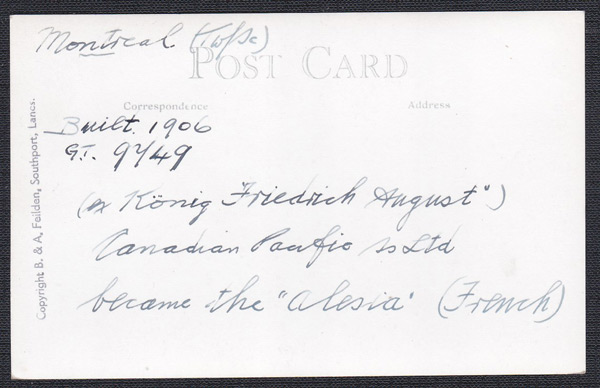 Montreal
POST CARD
Correspondence Address
Built. 1906
G.T. 9749
(ex König Friedrich August")
Canadian Pacific SS Ltd
became the "Alesia" (French)
Copyright B. & A. Feilden, Southport, Lancs.